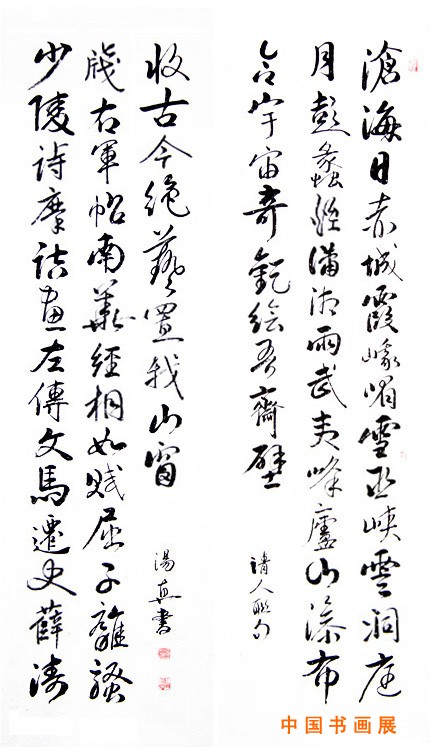 滄海日赤城霞峨嵋雪巫峽雲洞庭
月彭蠡煙瀟湘雨武夷峰廬山瀑布
合宇宙奇觀繪吾齋壁
清人聯句
少陵詩摩詰畫左傳文馬遷史薛濤
牋右軍帖南華經相如賦屈子離騷
收古今絕藝置我山窗
湯真書
中国书画展